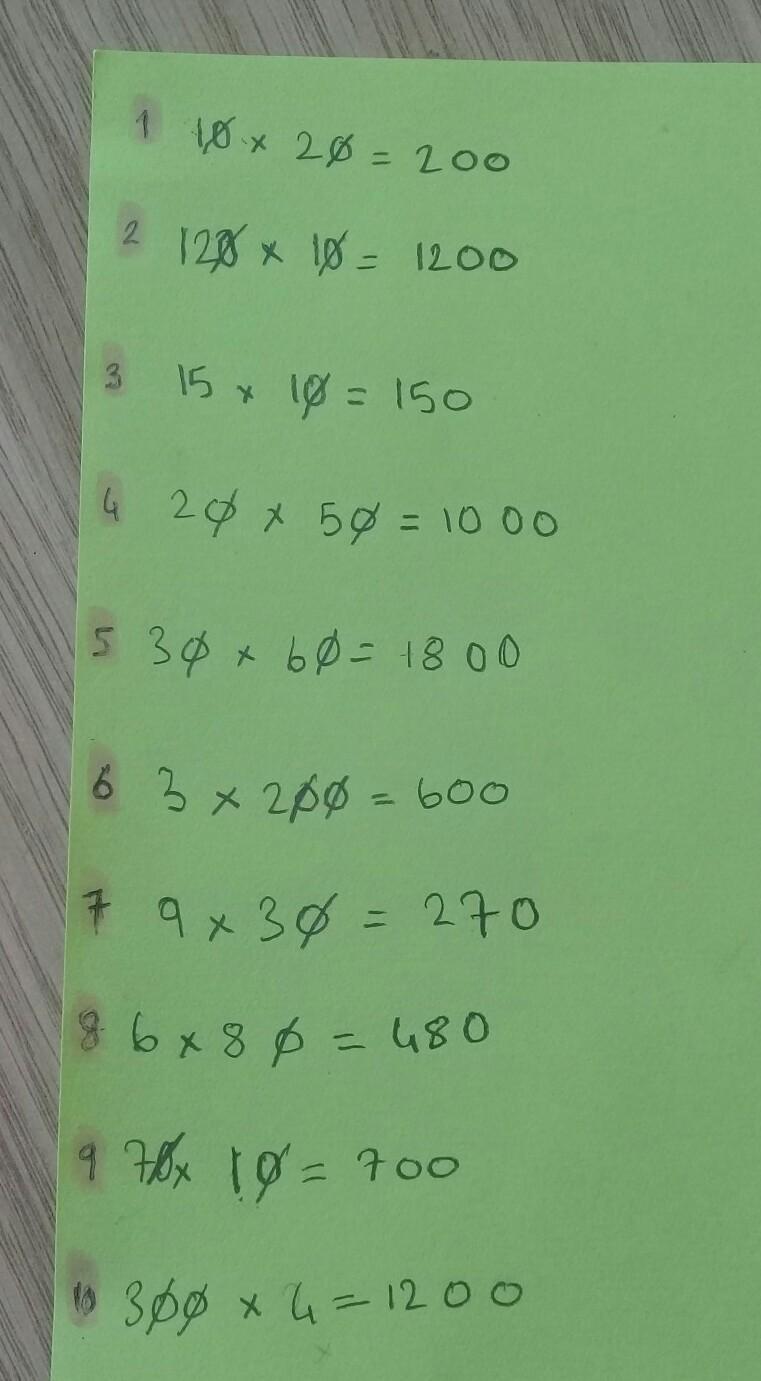 1 10 × 20 = 200
2 120 × 10 = 1200
3 15 × 10 = 150
4 20 × 50 = 1000
5 30 × 60 = 1800
6 3 × 200 = 600
7 9 × 30 = 270
8 6 × 80 = 480
9 70 × 10 = 700
10 300 × 4 = 1200